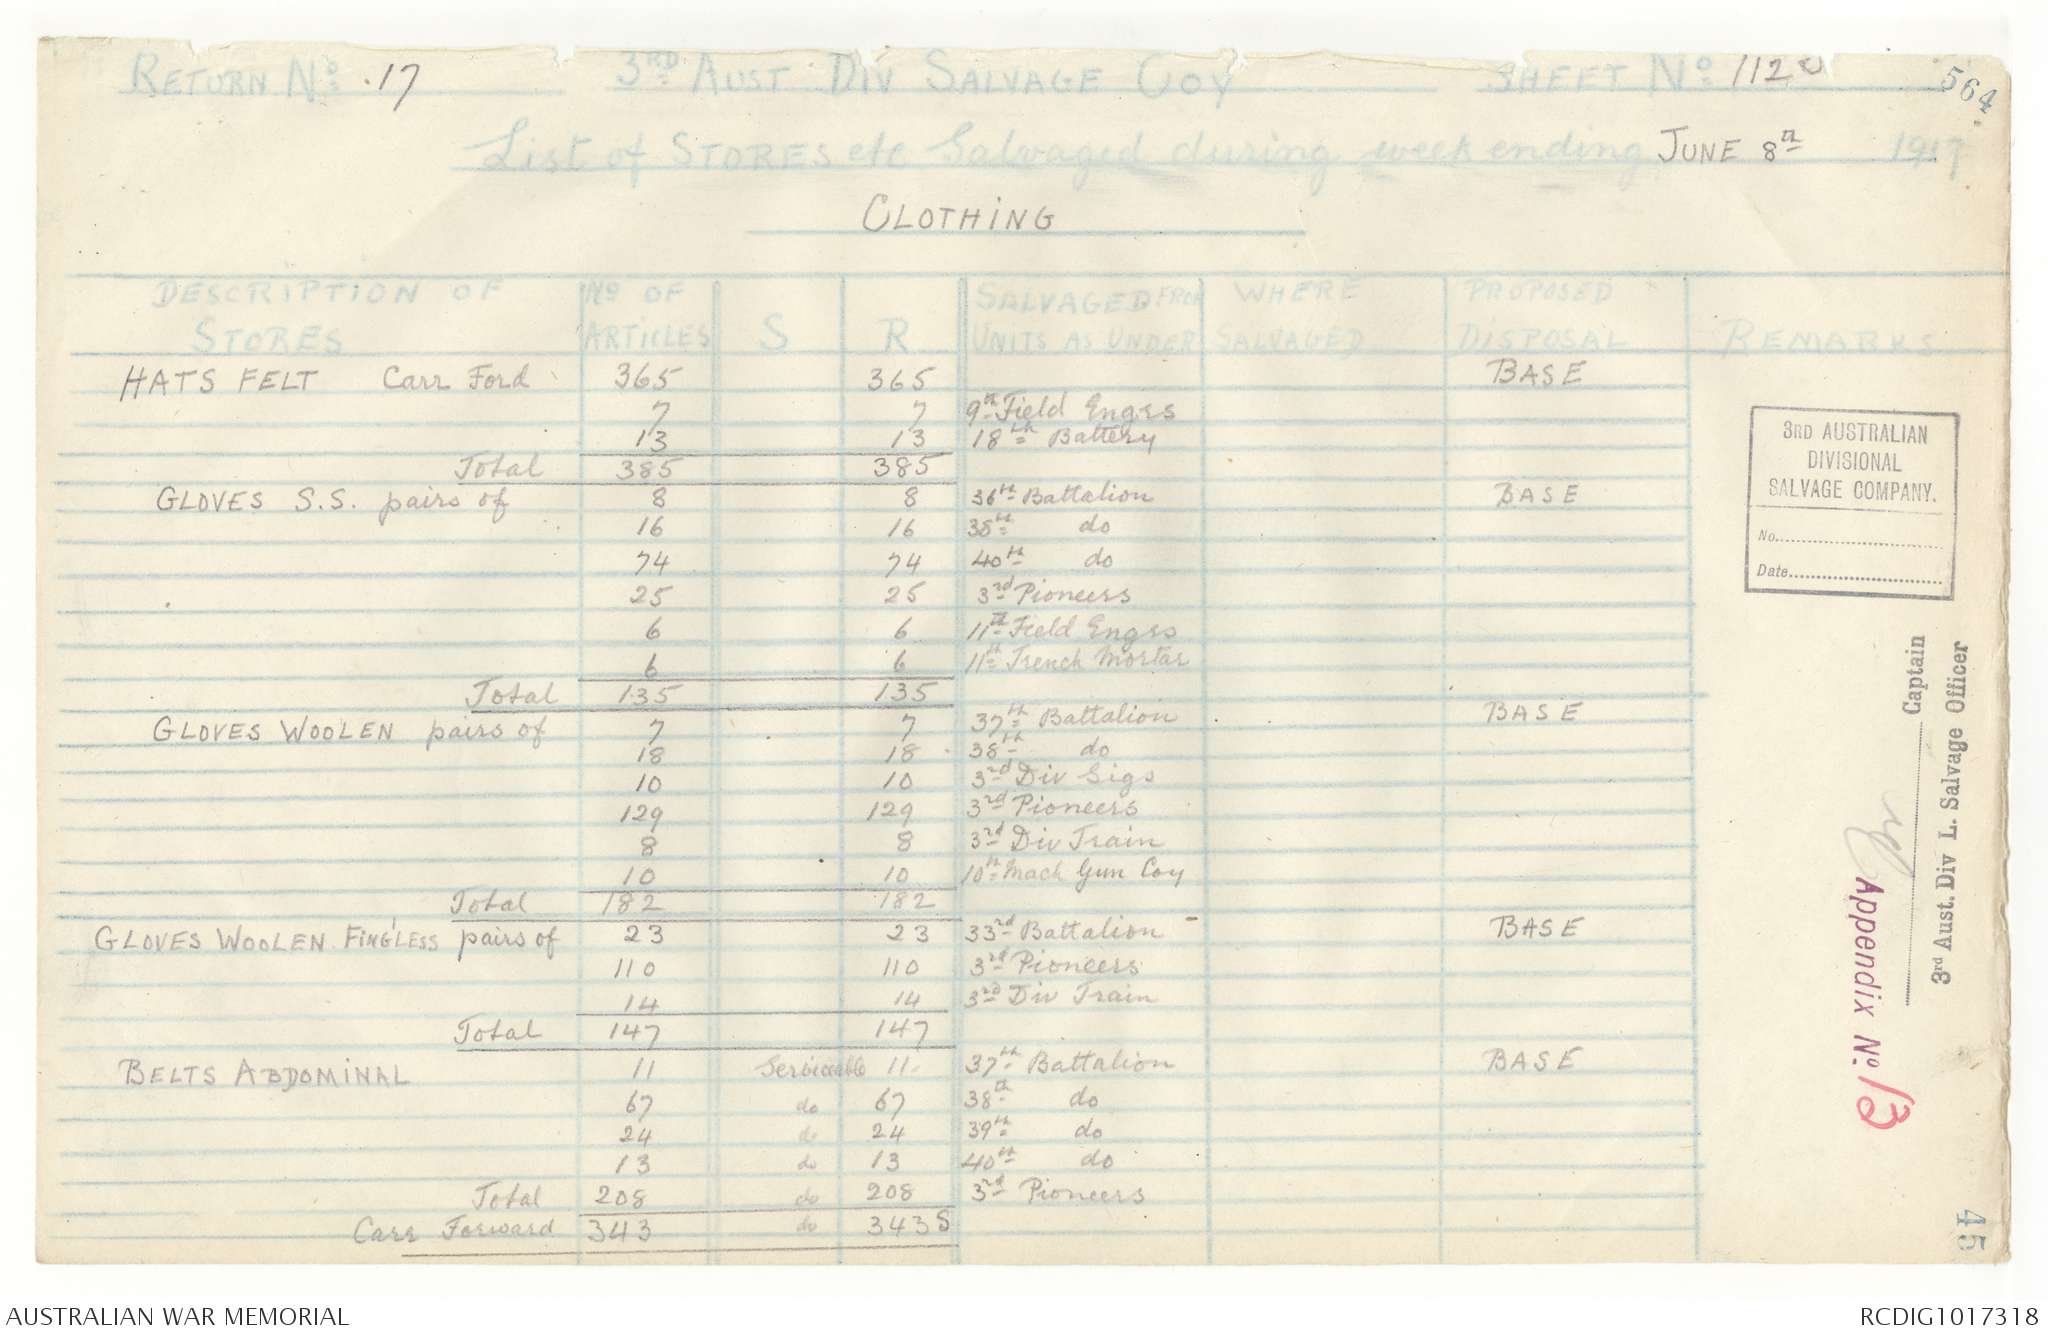 RETURN No. 17 3RD AUST. DIV SALVAGE COY SHEET No. 112
564
List of STORES etc Salvaged during week ending JUNE 8th 1917
CLOTHING
DESCRIPTION OF STORES No OF ARTICLES S R SALVAGED FROM UNITS AS UNDER WHERE SALVAGED PROPOSED DISPOSAL REMARKS
HATS FELT Carr Ford 365 365 BASE
7 7 9th Field Engrs
13 13 18th Battery
Total 385 385
GLOVES S.S. pairs of 8 8 36th Battalion BASE
16 16 38th do
74 74 40th do
25 25 3rd Pioneers
6 6 11th Field Engrs
6 6 11th Trench Mortar
Total 135 135
GLOVES WOOLEN pairs of 7 7 37th Battalion BASE
18 18 38th do
10 10 3rd Div Sigs
129 129 3rd Pioneers
8 8 3rd Div Train
10 10 10th Mach Gun Coy
Total 182 182
GLOVES WOOLEN FING'LESS pairs of 23 23 33rd Battalion BASE
110 110 3rd Pioneers
14 14 3rd Div Train
Total 147 147
BELTS ABDOMINAL 11 Serviceable 11 37th Battalion BASE
67 do 67 38th do
24 do 24 39th do
13 do 13 40th do
Total 208 do 208 3rd Pioneers
Carr Forward 343 do 343 S
3RD AUSTRALIAN
DIVISIONAL
SALVAGE COMPANY.
No.
Date
Captain
3rd Aust. Div L. Salvage Officer
Appendix No. 13
45
AUSTRALIAN WAR MEMORIAL RCDIG1017318